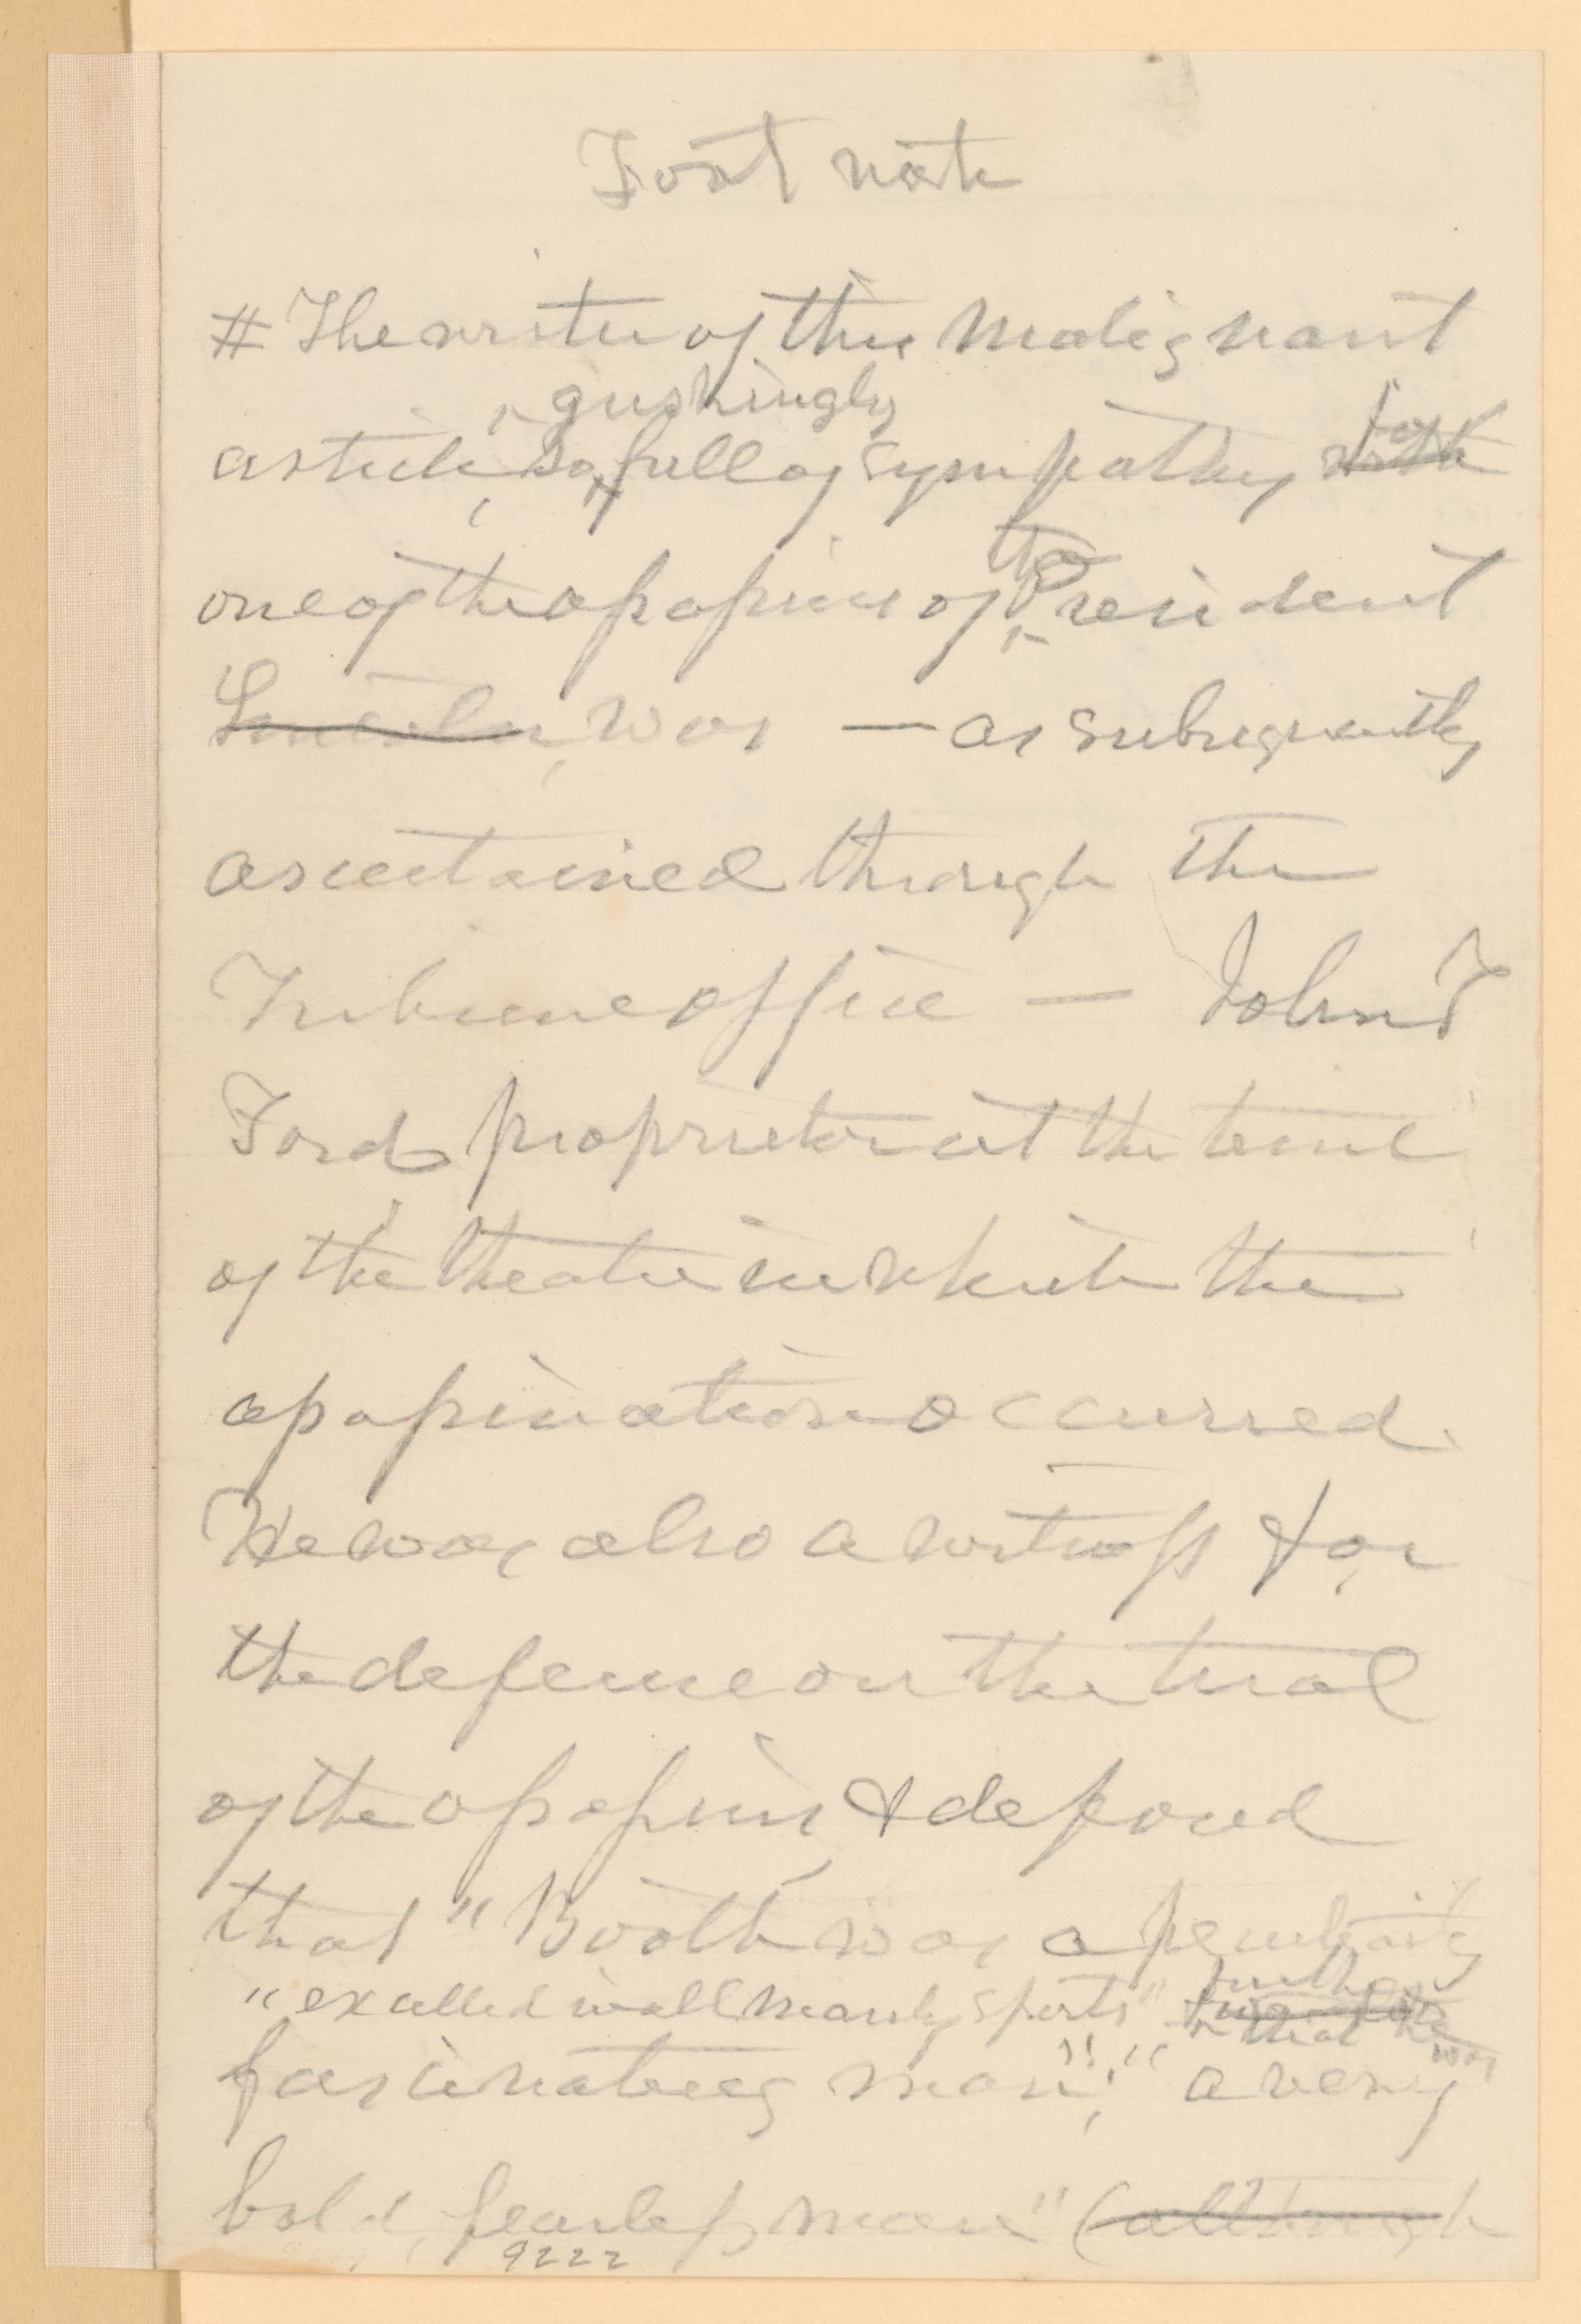 Foot note
# The writer of this malignant
gushingly
article, so full of sympathy with for
the
one of the assassins of President
Lincoln, was — as subsequently
ascertained through the
Tribune office — John T
Ford proprietor at the time
of the theatre in which the
assassination occurred.
He was also a witness for
the defense on the trial
of the assassins, & deposed
that "Booth was a peculiarly
"excelled in all manly sports"
that he was
fascinating man"; "a very
bold, fearless man" (although
9222